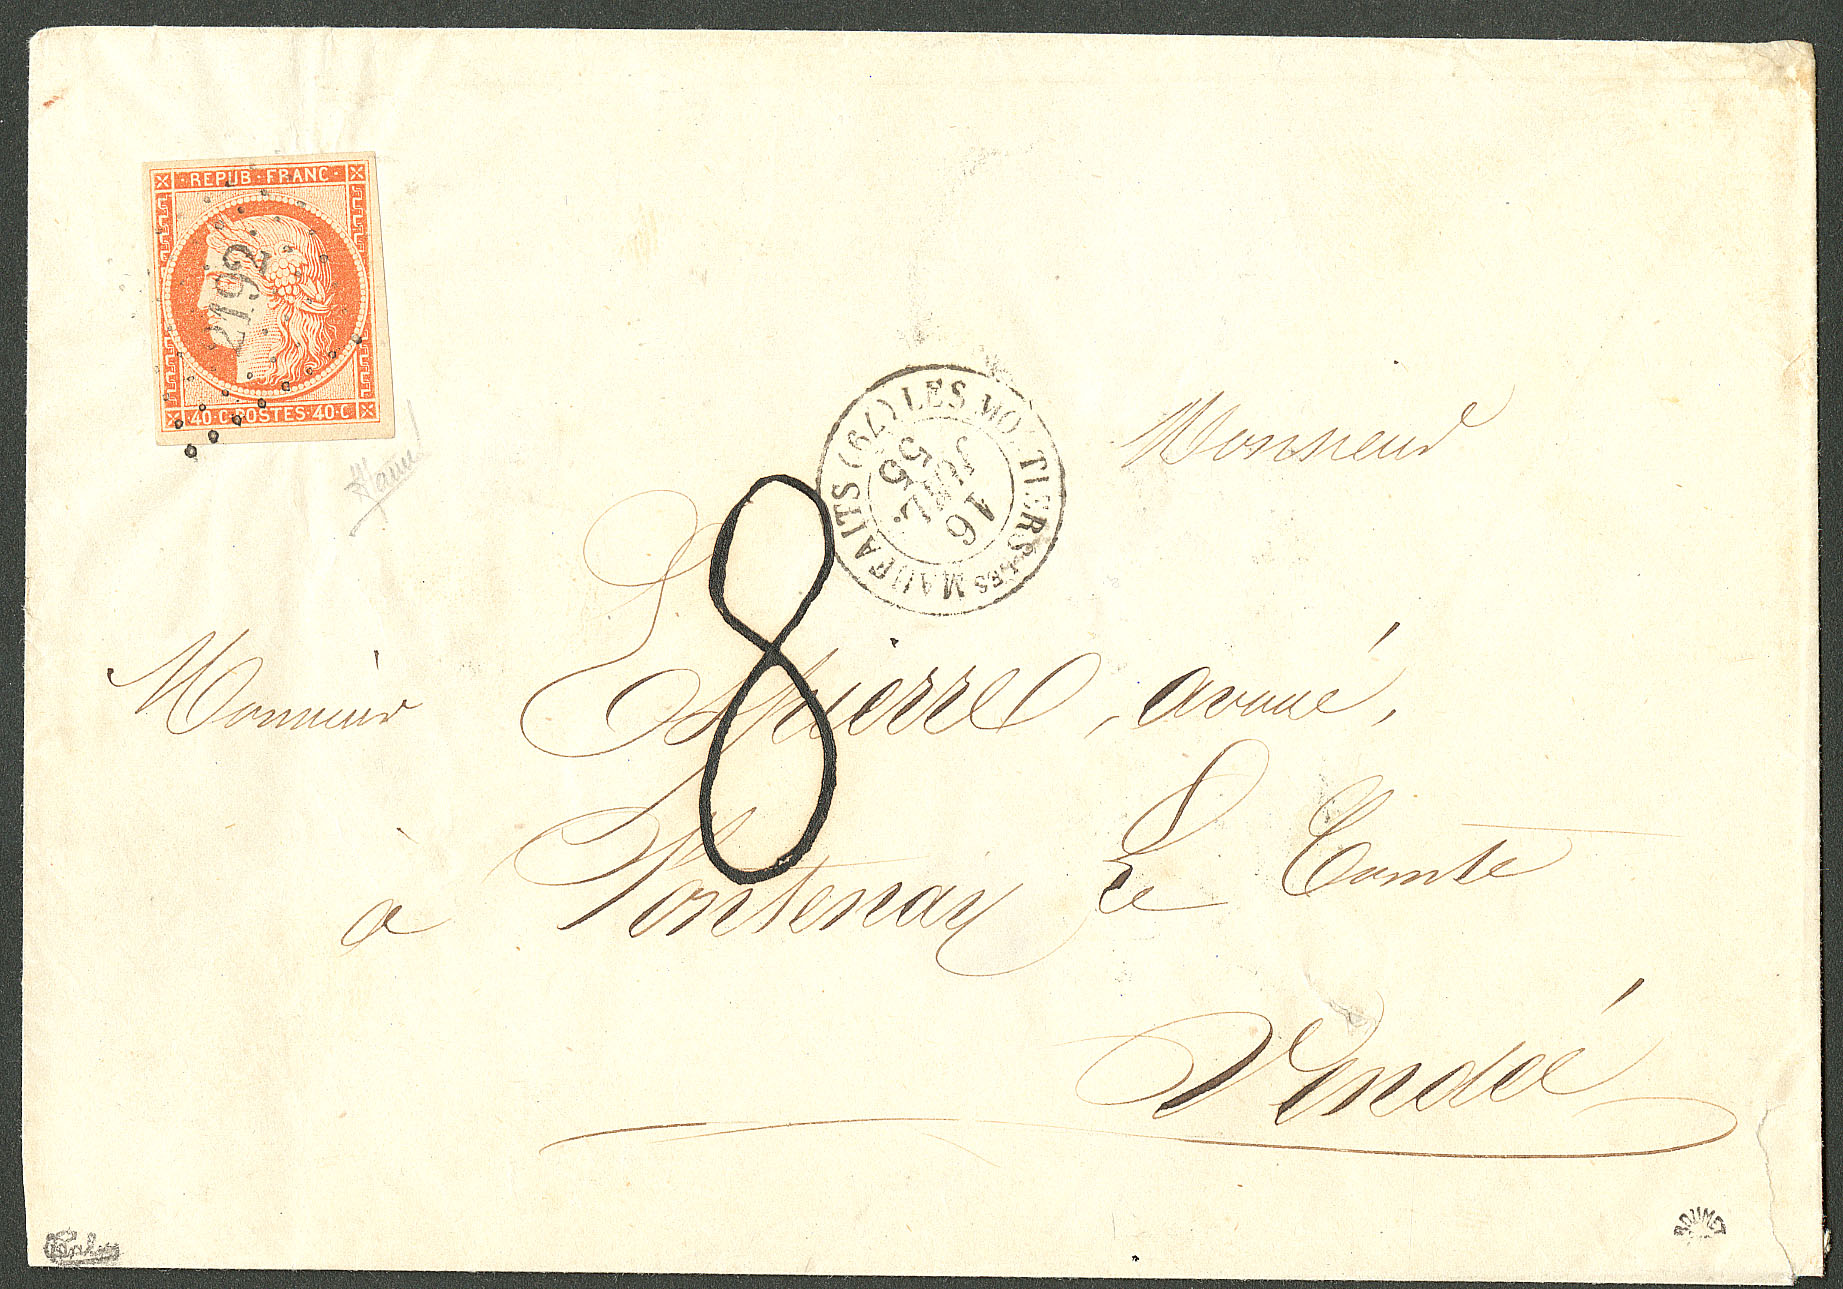 REPUB·FRANC·
2192
40·C·POSTES·40·C
LES MOUTIERS-LES MAUFAITS (79)
16
JUIL.
55
8
Monsieur
Monsieur Espierre, avoué,
à Fontenay Le Comte
Vendée
ROUMET